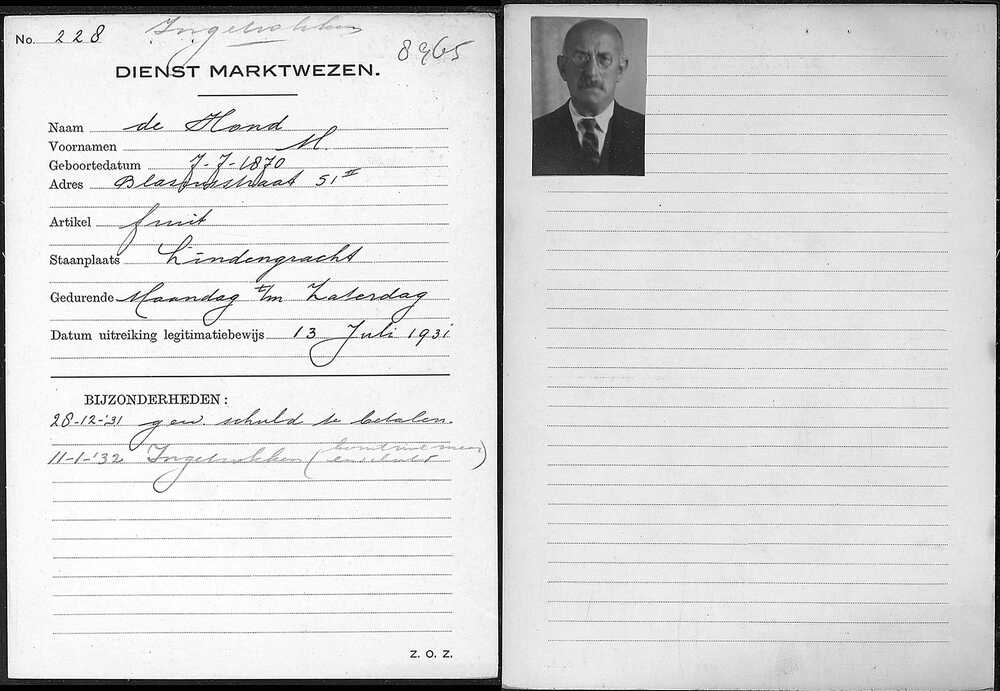 No. 228
Ingetrokken
DIENST MARKTWEZEN.
Naam de Hond
Voornamen M.
Geboortedatum 7-7-1870
Adres 51 II
Artikel fruit
Staanplaats Lindengracht
Gedurende Maandag t/m Zaterdag
Datum uitreiking legitimatiebewijs 13 Juli 1931
BIJZONDERHEDEN:
28-12-'31 gew. schuld te betalen.
11-1-'32 Ingetrokken (komt niet meer
en schuld)
Z. O. Z.